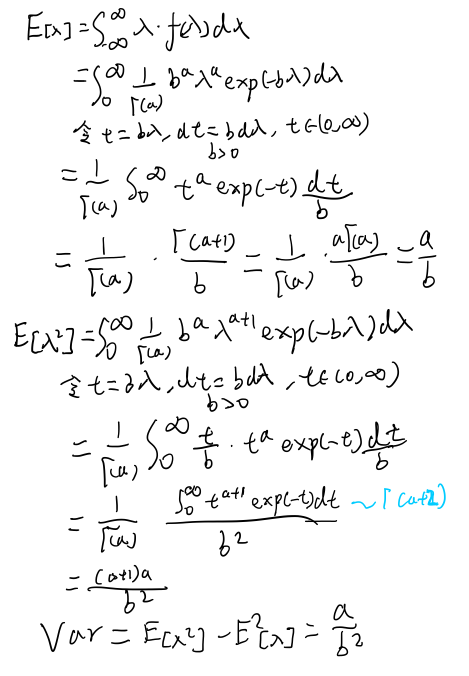 E[λ]=∫_{-∞}^{∞} λ·f(λ)dλ
=∫_0^∞ 1/Γ(a) b^a λ^a exp(-bλ)dλ
令 t=bλ, dt=bdλ, t∈(0,∞)
b>0
=1/Γ(a) ∫_0^∞ t^a exp(-t) dt/b
=1/Γ(a) · Γ(a+1)/b = 1/Γ(a) · aΓ(a)/b = a/b
E[λ²]=∫_0^∞ 1/Γ(a) b^a λ^{a+1} exp(-bλ)dλ
令 t=bλ, dt=bdλ, t∈(0,∞)
b>0
=1/Γ(a) ∫_0^∞ t/b · t^a exp(-t) dt/b
=1/Γ(a) ∫_0^∞ t^{a+1} exp(-t)dt / b² ~Γ(a+2)
=(a+1)a/b²
Var = E[λ²] - E²[λ] = a/b²